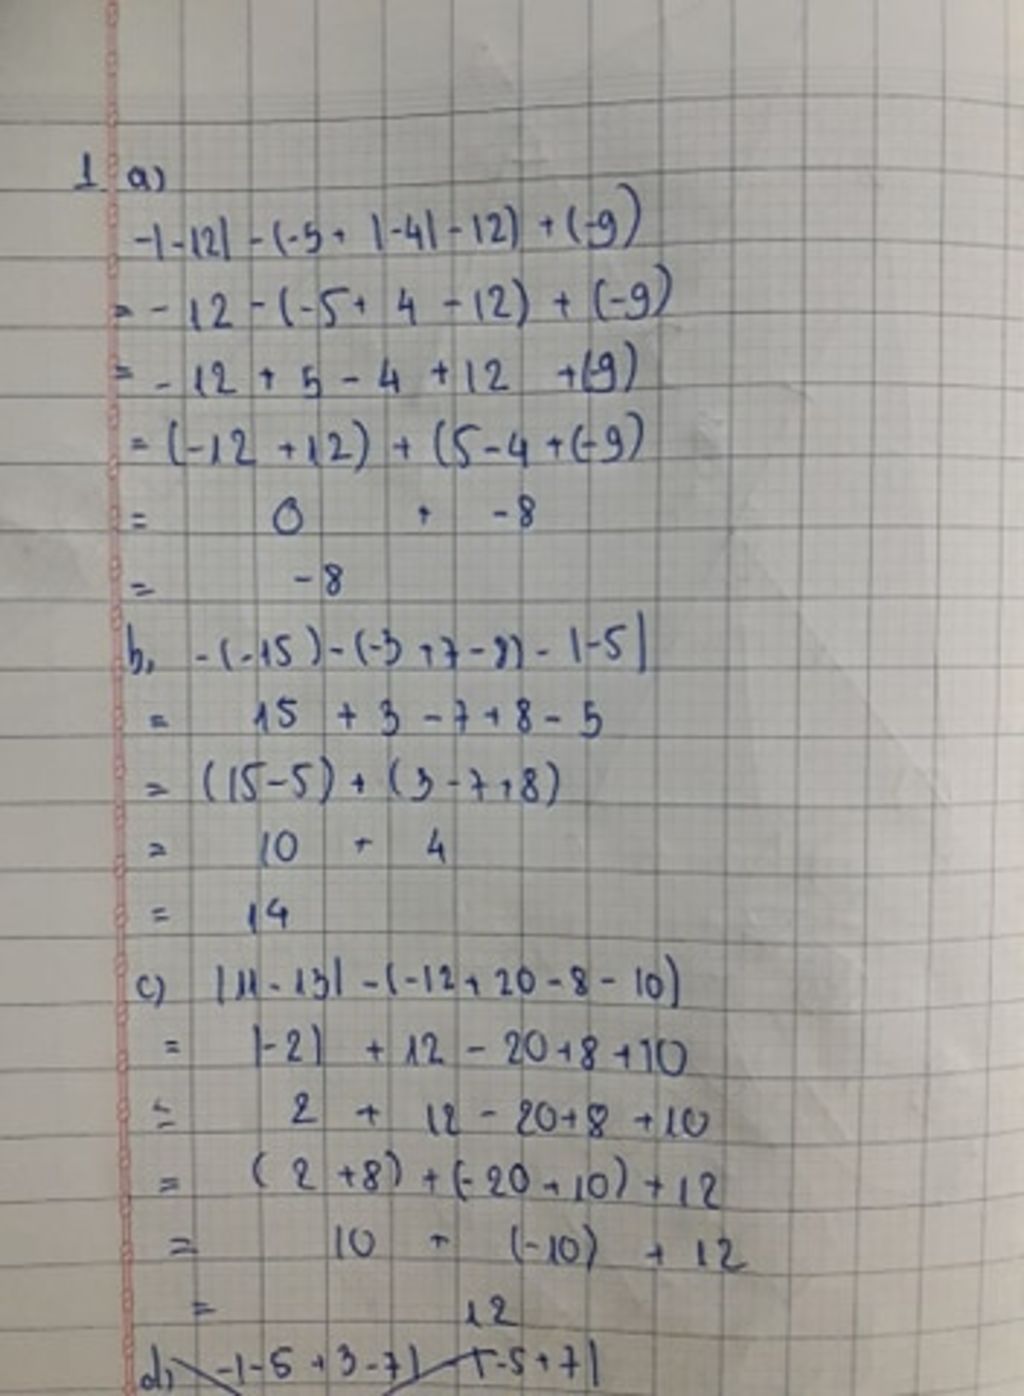 1 a)
-|-12| - (-5 + |-4| - 12) + (-9)
= - 12 - (-5 + 4 - 12) + (-9)
= - 12 + 5 - 4 + 12 + (-9)
= (-12 + 12) + (5 - 4 + (-9)
= 0 + -8
= -8
b, -(-15) - (-3 + 7 - 8) - |-5|
= 15 + 3 - 7 + 8 - 5
= (15 - 5) + (3 - 7 + 8)
= 10 + 4
= 14
c) |11 - 13| - (-12 + 20 - 8 - 10)
= |-2| + 12 - 20 + 8 + 10
= 2 + 12 - 20 + 8 + 10
= (2 + 8) + (-20 + 10) + 12
= 10 + (-10) + 12
= 12
d, -|-5 + 3 - 7| - |-5 + 7|